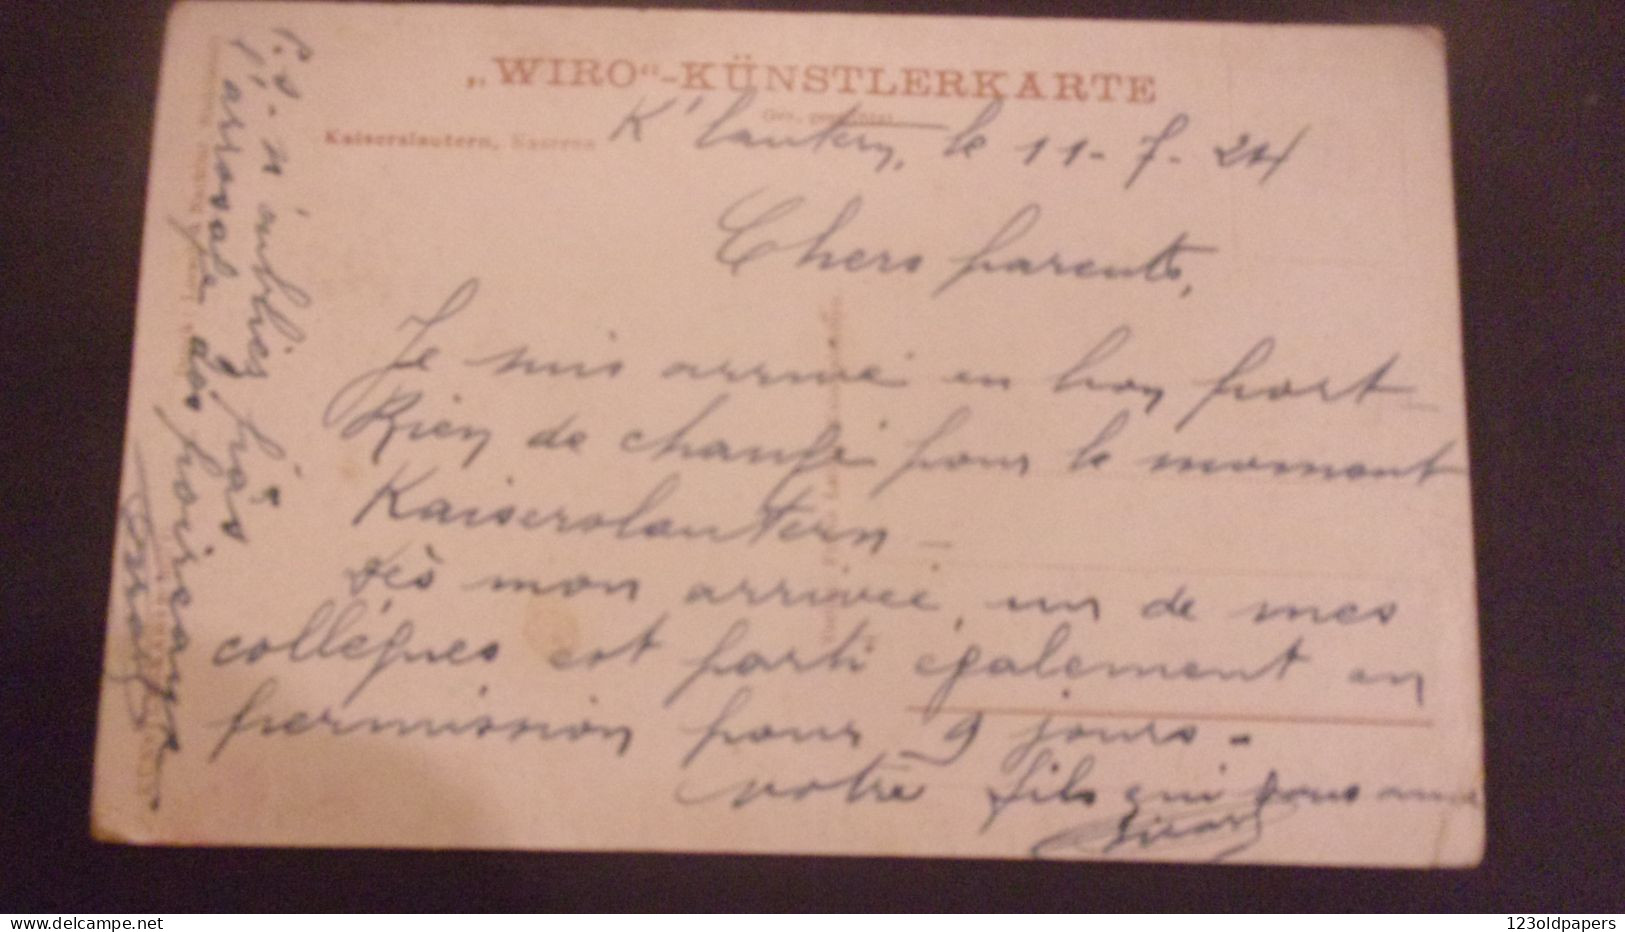 „WIRO“-KÜNSTLERKARTE
Kaiserslautern, Kaserne
K'lautern, le 11-7-24
Chers parents,
Je suis arrivé en bon port
Rien de changé pour le moment
Kaiserslautern -
Dès mon arrivée, un de mes
collègues est parti également en
permission pour 9 jours -
votre fils qui vous aime
P.S - N'oubliez pas
l'arrosage des
www.delcampe.net
123oldpapers